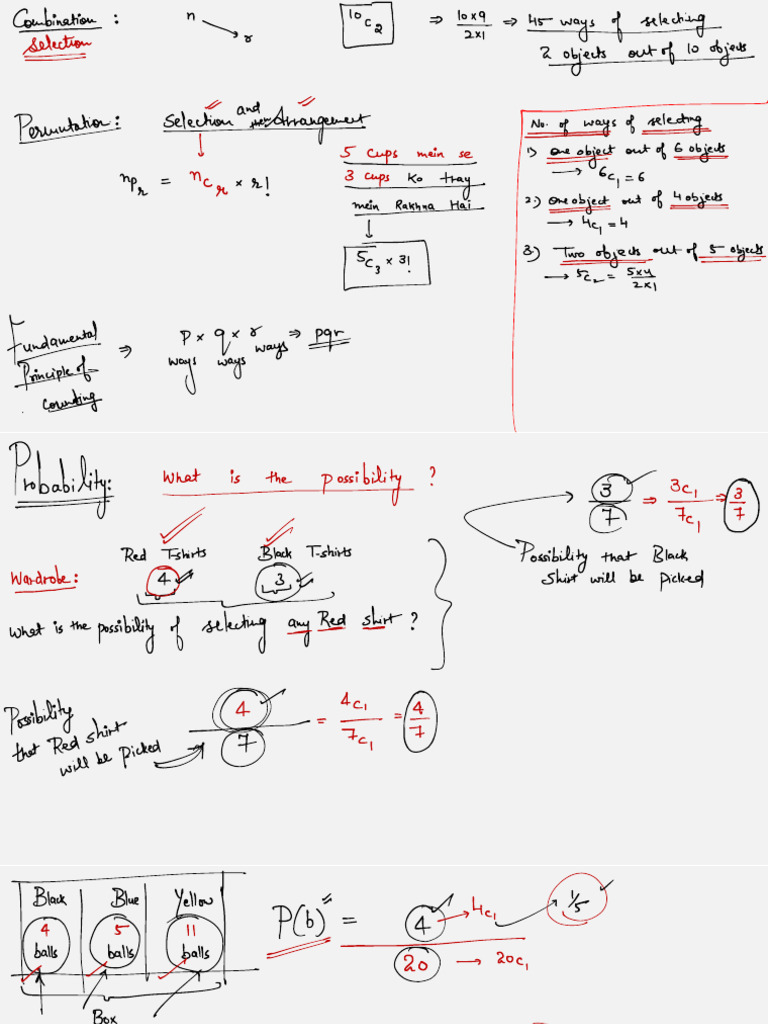 Combination :
Selection
n
r
10C2
⇒ 10×9 / 2×1 ⇒ 45 ways of selecting
2 objects out of 10 objects
Permutation: Selection and Arrangement
nPr = nCr × r!
5 cups mein se
3 cups ko tray
mein Rakhna Hai
5C3 × 3!
No. of ways of selecting
1) one object out of 6 objects
→ 6C1 = 6
2) one object out of 4 objects
→ 4C1 = 4
3) Two objects out of 5 objects
→ 5C2 = 5×4 / 2×1
Fundamental
Principle of
Counting
⇒ P × q × r ⇒ pqr
ways ways ways
Probability: What is the possibility ?
Red T-shirts Black T-shirts
Wardrobe: 4 3
What is the possibility of selecting any Red shirt ?
3 / 7 ⇒ 3C1 / 7C1 ⇒ 3 / 7
Possibility that Black
Shirt will be picked
Possibility
that Red shirt
will be Picked
4 / 7 = 4C1 / 7C1 = 4 / 7
Black Blue Yellow
4 5 11
balls balls balls
Box
P(b) = 4 / 20
4C1
20C1
1/5